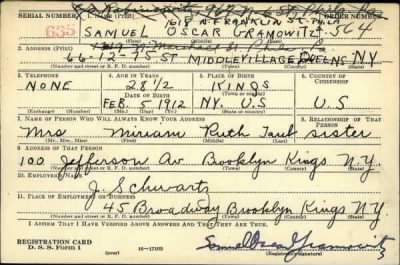 SERIAL NUMBER 1. NAME (Print)
635 SAMUEL OSCAR GRAMOWITZ 564
1618 N. FRANKLIN ST. PHILA
2. ADDRESS (Print)
66-12 75 ST MIDDLEVILLAGE QUEENS NY
(Number and street or R. F. D. number) (Town) (County) (State)
3. TELEPHONE 4. AGE IN YEARS 5. PLACE OF BIRTH 6. COUNTRY OF CITIZENSHIP
NONE 28 1/2 KINGS
DATE OF BIRTH
FEB. 5 1912 NY. U.S U.S
(Exchange) (Number) (Mo.) (Day) (Yr.) (State or country)
7. NAME OF PERSON WHO WILL ALWAYS KNOW YOUR ADDRESS 8. RELATIONSHIP OF THAT PERSON
Mrs Miriam Ruth Taub sister
(Mr., Mrs., Miss) (First) (Middle) (Last)
9. ADDRESS OF THAT PERSON
100 Jefferson Av Booklyn Kings N.Y.
(Number and street or R. F. D. number) (Town) (County) (State)
10. EMPLOYER'S NAME
J. Schwartz
11. PLACE OF EMPLOYMENT OR BUSINESS
45 Broadway Brooklyn Kings N.Y.
(Number and street or R. F. D. number) (Town) (County) (State)
I AFFIRM THAT I HAVE VERIFIED ABOVE ANSWERS AND THAT THEY ARE TRUE.
REGISTRATION CARD
D. S. S. Form 1 (over) 16—17105 Samuel Oscar Gramowitz
(Registrant's signature)